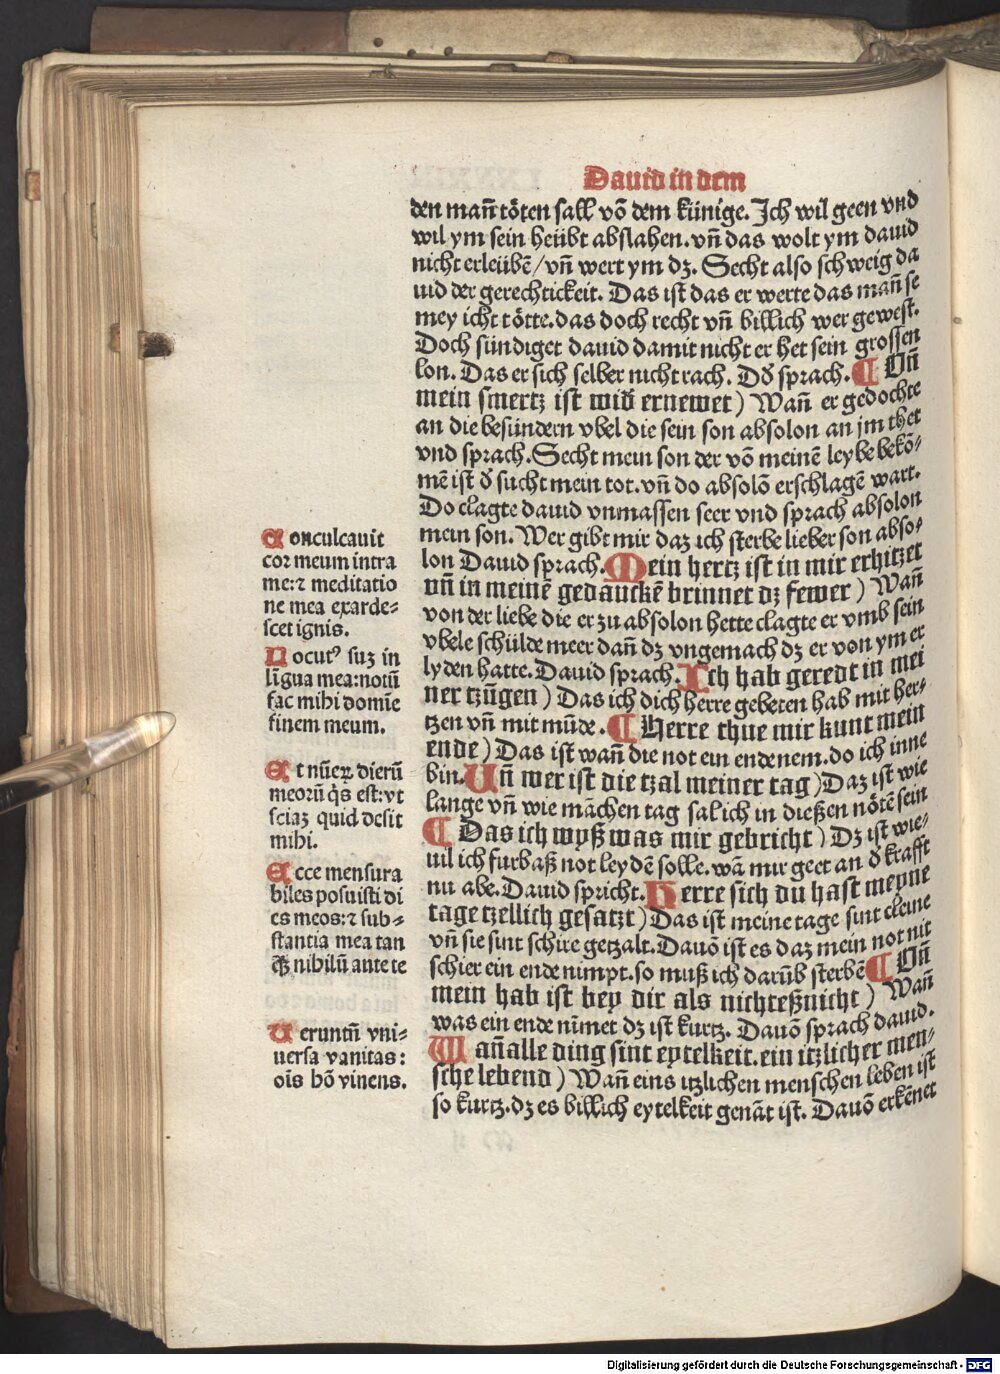 Dauid in dem
den mañ töten sall võ dem künige. Ich wil geen vnd
wil ym sein heübt abslahen. vñ das wolt ym dauid
nicht erleübẽ/vñ wert ym dʒ. Secht also schweig da
uid der gerechtickeit. Das ist das er werte das mañ se
mey icht tötte. das doch recht vñ billich wer gewest.
Doch sündiget dauid damit nicht er het sein grossen
lon. Das er sich selber nicht rach. Dð sprach. ¶ Vñ
mein smertz ist wið ernewet) Wañ er gedochte
an die besündern vbel die sein son absolon an jm thet
vnd sprach. Secht mein son der võ meinẽ leybe bekõ⸗
mẽ ist ð sucht mein tot. vñ do absolõ erschlagẽ wart.
Do clagte dauid vnmassen seer vnd sprach absolon
mein son. Wer gibt mir daz ich sterbe lieber son abso⸗
lon Dauid sprach. Mein hertz ist in mir erhitzet
vñ in meinẽ gedanckẽ brinnet dʒ fewer) Wañ
von der liebe die er zu absolon hette clagte er vmb sein
vbele schülde meer dañ dʒ vngemach dʒ er von ym er
lyden hatte. Dauid sprach. Ich hab geredt in mei
ner tzũgen) Das ich dich herre gebeten hab mit her⸗
tzen vñ mit mũde. ¶ Herre thue mir kunt mein
ende) Das ist wañ die not ein ende nem. do ich inne
bin. Uñ wer ist die tzal meiner tag) Daz ist wie
lange vñ wie mãchen tag sal ich in dießen nötẽ sein
¶ Das ich wyß was mir gebricht) Dʒ ist wie⸗
uil ich furbaß not leydẽ solle. wã mir geet an ð krafft
nu abe. Dauid spricht. Herre sich du hast meyne
tage tzellich gesatzt) Das ist meine tage sint cleine
vñ sie sint schire getzalt. Dauõ ist es daz mein not nit
schier ein ende nimpt. so muß ich darũb sterbẽ ¶ Vñ
mein hab ist bey dir als nichteßnicht) Wañ
was ein ende nĩmet dʒ ist kurtz. Dauõ sprach dauid.
Wañ alle ding sint eytelkeit. ein itzlicher men⸗
sche lebend) Wañ eins itzlichen menschen leben ist
so kurtz. dʒ es billich eytelkeit genãt ist. Dauõ erkẽnet
Conculcauit
cor meum intra
me: ⁊ meditatio
ne mea exarde⸗
scet ignis.
Locutꝰ suʒ in
lĩgua mea: notũ
fac mihi domĩe
finem meum.
Et nũeꝝ dierũ
meorũ q̃s est: vt
sciaʒ quid desit
mihi.
Ecce mensura
biles posuisti di
es meos: ⁊ sub⸗
stantia mea tan
q̃ʒ nihilũ ante te
Ueruntñ vni⸗
uersa vanitas:
oĩs hõ viuens.
Digitalisierung gefördert durch die Deutsche Forschungsgemeinschaft - DFG